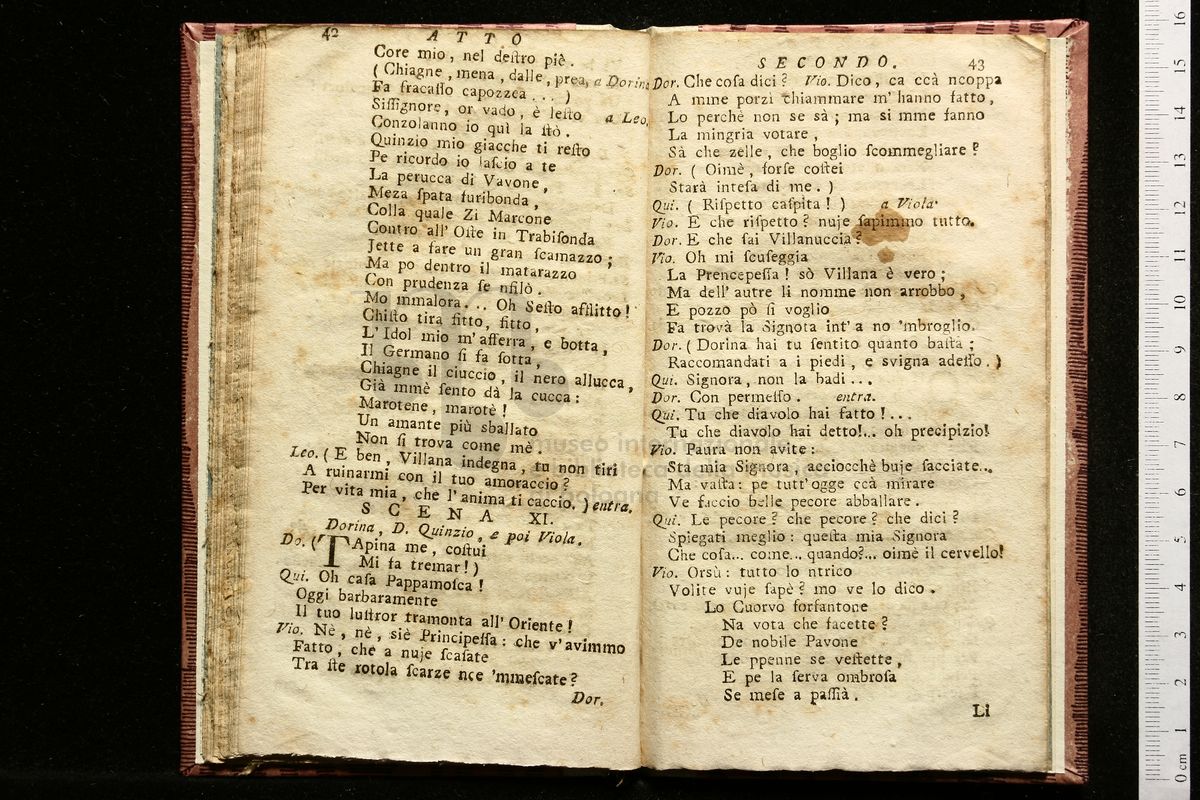 42 ATTO
Core mio, nel deſtro piè.
( Chiagne, mena, dalle, prea, a Dorina
Fa fracaſſo capozzea... )
Siſſignore, or vado, è leſto a Leo.
Conzolanno io quì la ſtò.
Quinzio mio giacche ti reſto
Pe ricordo io laſcio a te
La perucca di Vavone,
Meza ſpata furibonda,
Colla quale Zi Marcone
Contro all' Oſte in Trabiſonda
Jette a fare un gran ſcamazzo;
Ma po dentro il matarazzo
Con prudenza ſe nfilò.
Mo mmalora... Oh Seſto afflitto!
Chiſto tira fitto, fitto,
L' Idol mio m'afferra, e botta,
Il Germano ſi fa ſotta,
Chiagne il ciuccio, il nero allucca,
Già mmè ſento dà la cucca:
Marotene, marotè!
Un amante più sballato
Non ſi trova come mè.
Leo. ( E ben, Villana indegna, tu non tiri
A ruinarmi con il tuo amoraccio?
Per vita mia, che l'anima ti caccio. ) entra.
SCENA XI.
Dorina, D. Quinzio, e poi Viola.
Do. ( TApina me, coſtui
Mi fa tremar! )
Qui. Oh caſa Pappamoſca!
Oggi barbaramente
Il tuo luſtror tramonta all' Oriente!
Vio. Nè, nè, siè Principeſſa: che v'avimmo
Fatto, che a nuje ſcaſate
Tra ſte rotola ſcarze nce 'mmeſcate?
Dor.
SECONDO. 43
Dor. Che coſa dici? Vio. Dico, ca ccà ncoppa
A mme porzì chiammare m' hanno fatto,
Lo perchè non se sà; ma si mme fanno
La mingria votare,
Sà che zelle, che boglio ſcommegliare?
Dor. ( Oimè, forſe coſtei
Starà inteſa di me. )
Qui. ( Riſpetto caſpita! ) a Viola
Vio. E che riſpetto? nuje ſapimmo tutto.
Dor. E che ſai Villanuccia?
Vio. Oh mi ſcuſeggia
La Prencepeſſa! sò Villana è vero;
Ma dell' autre li nomme non arrobbo,
E pozzo pò ſi voglio
Fa trovà la Signota int' a no 'mbroglio.
Dor. ( Dorina hai tu ſentito quanto baſta;
Raccomandati a i piedi, e svigna adeſſo. )
Qui. Signora, non la badi...
Dor. Con permeſſo. entra.
Qui. Tu che diavolo hai fatto!...
Tu che diavolo hai detto!... oh precipizio!
Vio. Paura non avite:
Sta mia Signora, acciocchè buje facciate...
Ma vaſta: pe tutt' ogge ccà mirare
Ve faccio belle pecore abballare.
Qui. Le pecore? che pecore? che dici?
Spiegati meglio: queſta mia Signora
Che coſa... come... quando?... oimè il cervello!
Vio. Orsù: tutto lo ntrico
Volite vuje ſapè? mo ve lo dico.
Lo Cuorvo forfantone
Na vota che facette?
De nobile Pavone
Le ppenne se veſtette,
E pe la ſerva ombroſa
Se meſe a paſſià.
Li
museo internazionale
bologna